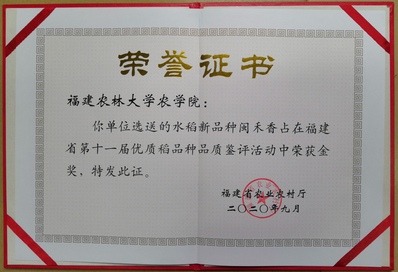 荣誉证书
福建农林大学农学院：
你单位选送的水稻新品种闽禾香占在福建
省第十一届优质稻品种品质鉴评活动中荣获金
奖、特发此证。
福建省农业农村厅
二〇二〇年九月